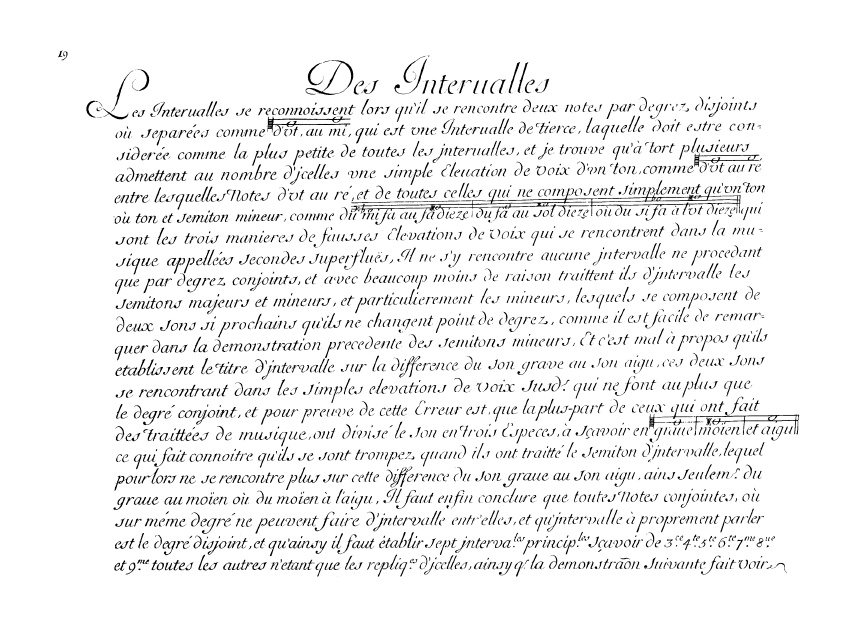 19
Des Interualles
Les Interualles se reconnoissent lors qu'il se rencontre deux notes par degrez, disjoints
où separées comme d'ot, au mi, qui est vne Interualle de tierce, laquelle doit estre con-
siderée comme la plus petite de toutes les jnterualles, et je trouve qu'à tort plusieurs
admettent au nombre d'jcelles vne simple Eleuation de voix d'vn ton, comme d'ot au ré
entre lesquelles Notes d'ot au ré, et de toutes celles qui ne composent simplement qu'vn ton
où ton et semiton mineur, comme du mi fa au fa dieze du fa au sol dieze où du si fa à l'ot dieze qui
sont les trois manieres de fausses Elevations de voix qui se rencontrent dans la mu-
sique appellées secondes superfluës, Il ne s'y rencontre aucune jntervalle ne procedant
que par degrez, conjoints, et avec beaucoup moins de raison traittent ils d'jntervalle les
semitons majeurs et mineurs, et particulierement les mineurs, lesquels se composent de
deux sons si prochains qu'ils ne changent point de degrez, comme il est facile de remar-
quer dans la demonstration precedente des semitons mineurs, Et c'est mal à propos qu'ils
etablissent le titre d'jntervalle sur la difference du son grave au son aigu, ces deux sons
se rencontrant dans les simples elevations de voix susd.t qui ne font au plus que
le degré conjoint, et pour preuve de cette Erreur est, que la plus-part de ceux qui ont fait
des traittées de musique, ont divisé le son en trois Especes, à sçavoir en graue moïen et aigu
ce qui fait connoitre qu'ils se sont trompez, quand ils ont traitté le semiton d'jntervalle, lequel
pour lors ne se rencontre plus sur cette difference du son graue au son aigu, ains seulem.t du
graue au moïen où du moïen à l'aigu, Il faut enfin conclure que toutes Notes conjointes, où
sur méme degré ne peuvent faire d'jntervalle entr'elles, et qu'jntervalle à proprement parler
est le degré disjoint, et qu'ainsy il faut établir sept jnterva.les princip.les sçavoir de 3.ce 4.te 5.te 6.te 7.me 8.ue
et 9.me toutes les autres n'etant que les repliq.es d'jcelles, ainsy q.e la demonstrãon suivante fait voir